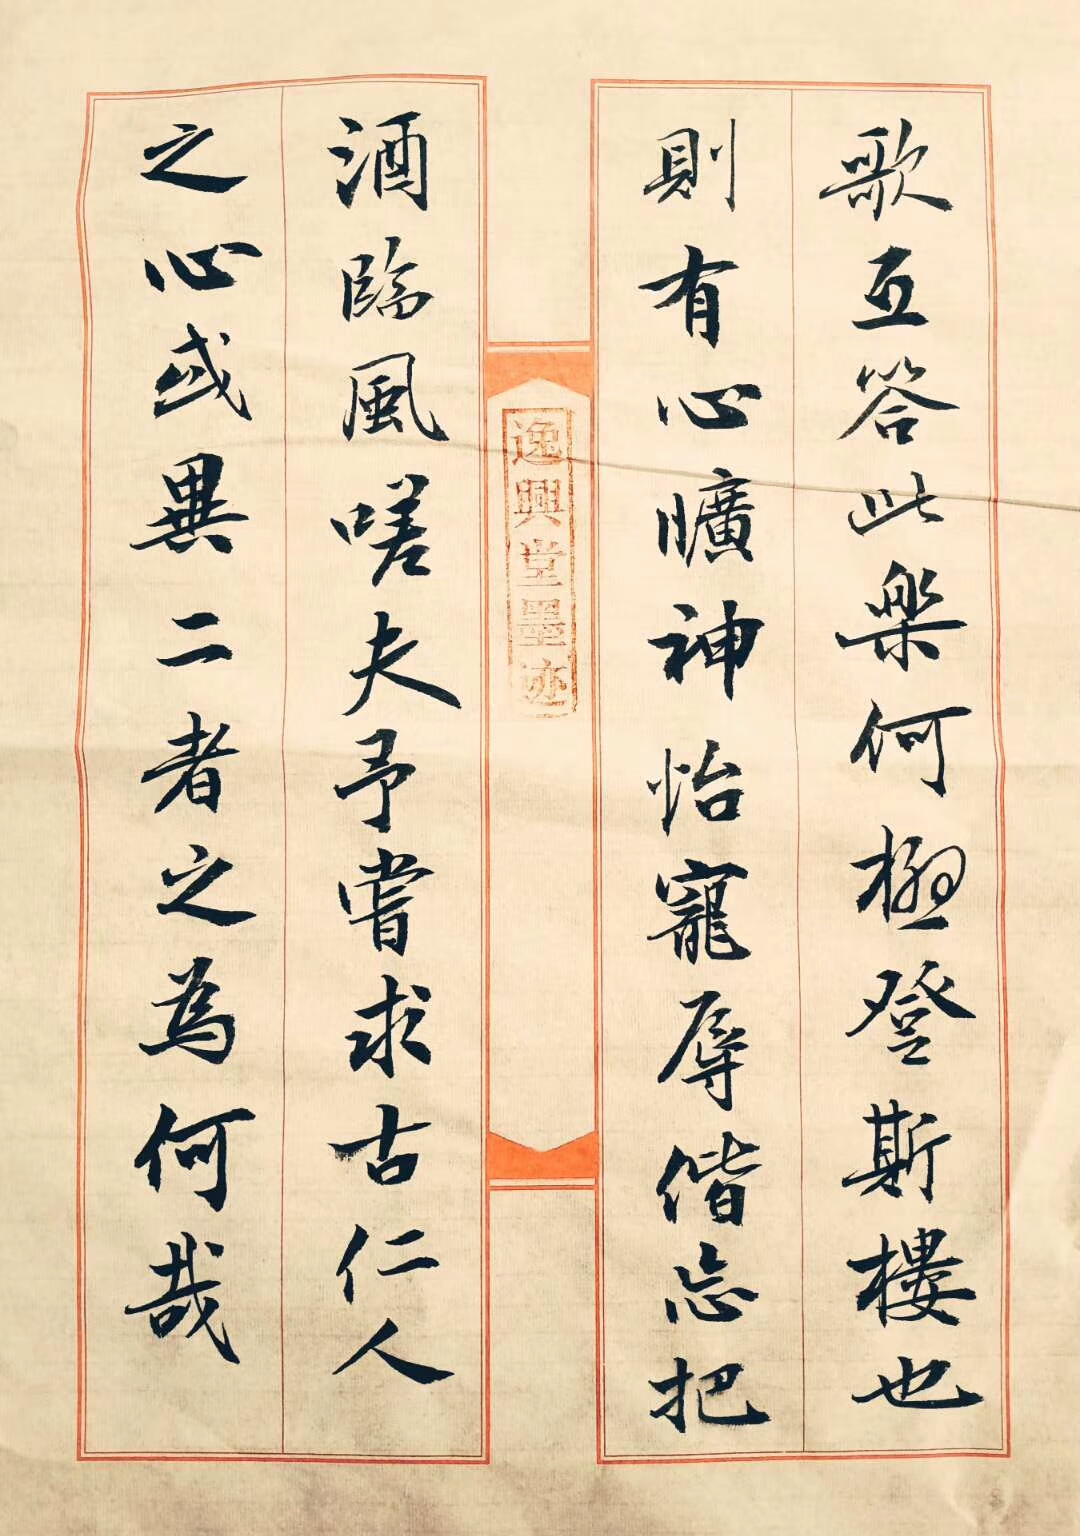 歌互答此樂何極登斯樓也
則有心曠神怡寵辱偕忘把
逸興堂墨迹
酒臨風嗟夫予嘗求古仁人
之心或異二者之為何哉